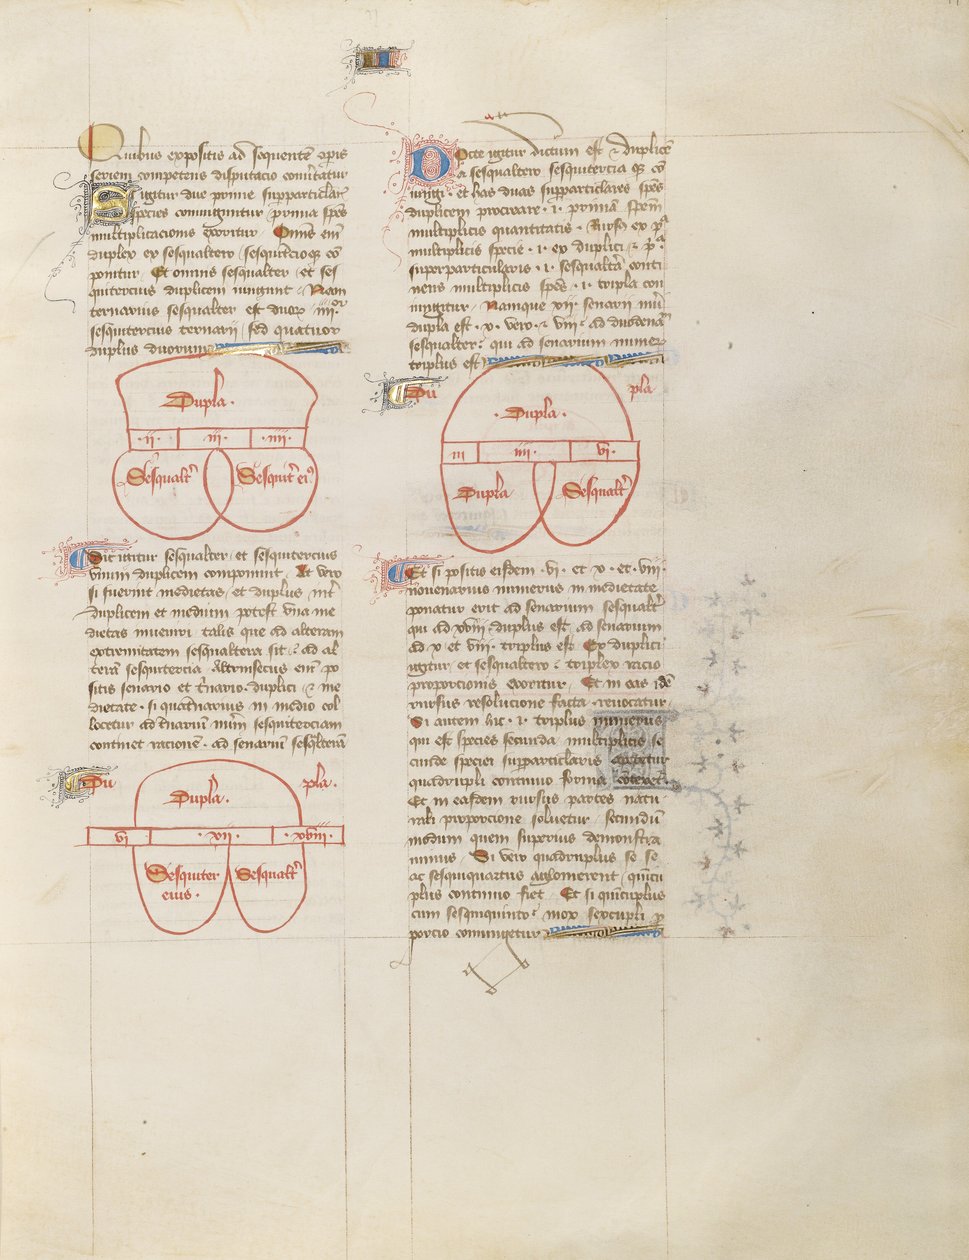 Quibus expositis ad sequentē operis
seriem competens disputacio comitatur
Si igitur due prime supparticlar
species coniunguntur prima spēs
multiplicacionis exoritur. Omnis eni
duplex ex sesqualtero sesquitercioq; cō
ponitur. Et omnis sesqualter et ses
quitercius duplicem iungunt. Nam
ternarius sesqualter est duorᷣ. iiii.or
sesquitercius ternarii, sed quatuor
duplus duorum
Dupla.
.ii. .iii. .iiii.
Sesqualtr̄ Sesquitr̄ciꝰ
igitur sesqualter et sesquitercius
vnum duplicem componunt. At vero
si fuerint medietas et duplus int̄
duplicem et medium potest vna me
dietas inueniri talis que ad alteram
extremitatem sesqualtera sit, ad al
terā sesquitercia. Altrinsecus eni po
sitis senario et duplici, me
dietate. si in medio col
locetur ad nūm sesquiterciam
continet racionē. ad senariū sesqlteram
Du pla.
Dupla.
vi .xii. .xviii.
Sesquiter
cius Sesqualtr̄
Docte igitur dictum est duplicē
a sesqualtero sesquitercia q; cō
iungi. et has duas supparticlares spēs
duplicem procreare .i. primā spēm
multiplicis quantitatis. Rursꝰ ex pa
multiplicis specie .i. ex duplici pa
superparticularis .i. sesqualtā conti
nens multiplicis spēs .i. tripla con
iungitur. Namque xii. senarii nūi
dupla est .x. vero. viii. ad duodenā
sesqualter: qui ad senarium numer
triplus est
Du pla
.Dupla.
iii .iiii. .vi.
Dupla Sesqualtr̄
Et si positis eisdem .vi. et x. et .viii.
nouenarius numerus in medietate
ponatur erit ad senarium sesqualtr̄
qui ad xviii. duplus est, ad senarium
ad x et viii. triplus est. Ex duplici
igitur et sesqualtero triplex racio
proporcionis exoritur. Et in eas idē
rursus resolucione facta reuocatur
Si autem hic .i. triplus numerus
qui est species secunda multiplicis se
cunde speciei supparticlaris aptetur
quadrupli continuo forma
Et in easdem rursus partes natu
rali proporcione soluetur, secundū
modum quem superius demonstra
uimus. Si vero quadruplus se se
ac sesquiquartus aglomerent, quicu
plus continuo fiet. Et si quicuplus
cum sesquiquinto mox sexcupli p
porcio coniungetur